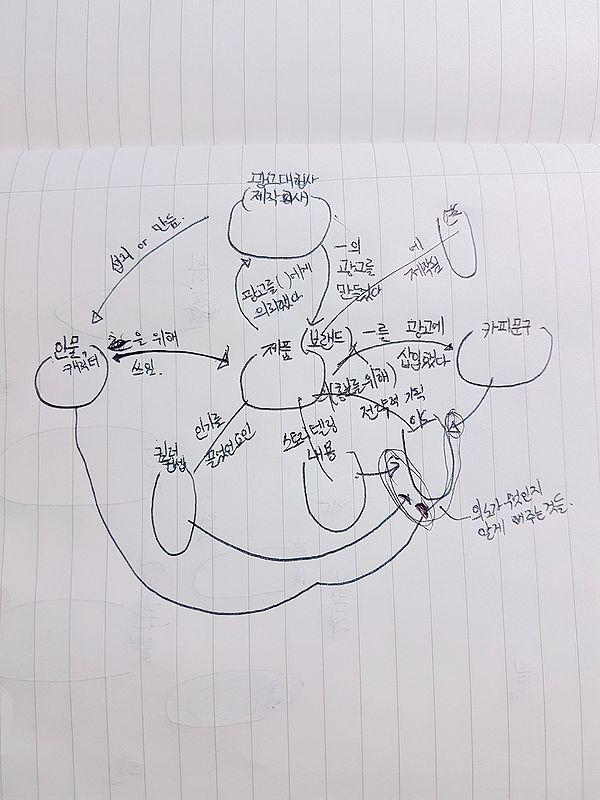 광고대행사
(제작회사)
섭외 or 만듦.
년
에
제작됨
~의
광고를
만들었다
광고를( )에게
의뢰했다
인물,
캐릭터
을 위해
쓰임.
제품
(브랜드)
~를 광고에
삽입했다
카피문구
(를 위해)
전략적 기획
의도
인기를
끌었던 요인
컬럼
스토리텔링
내용
의도가 무엇인지
알게 해주는것들.